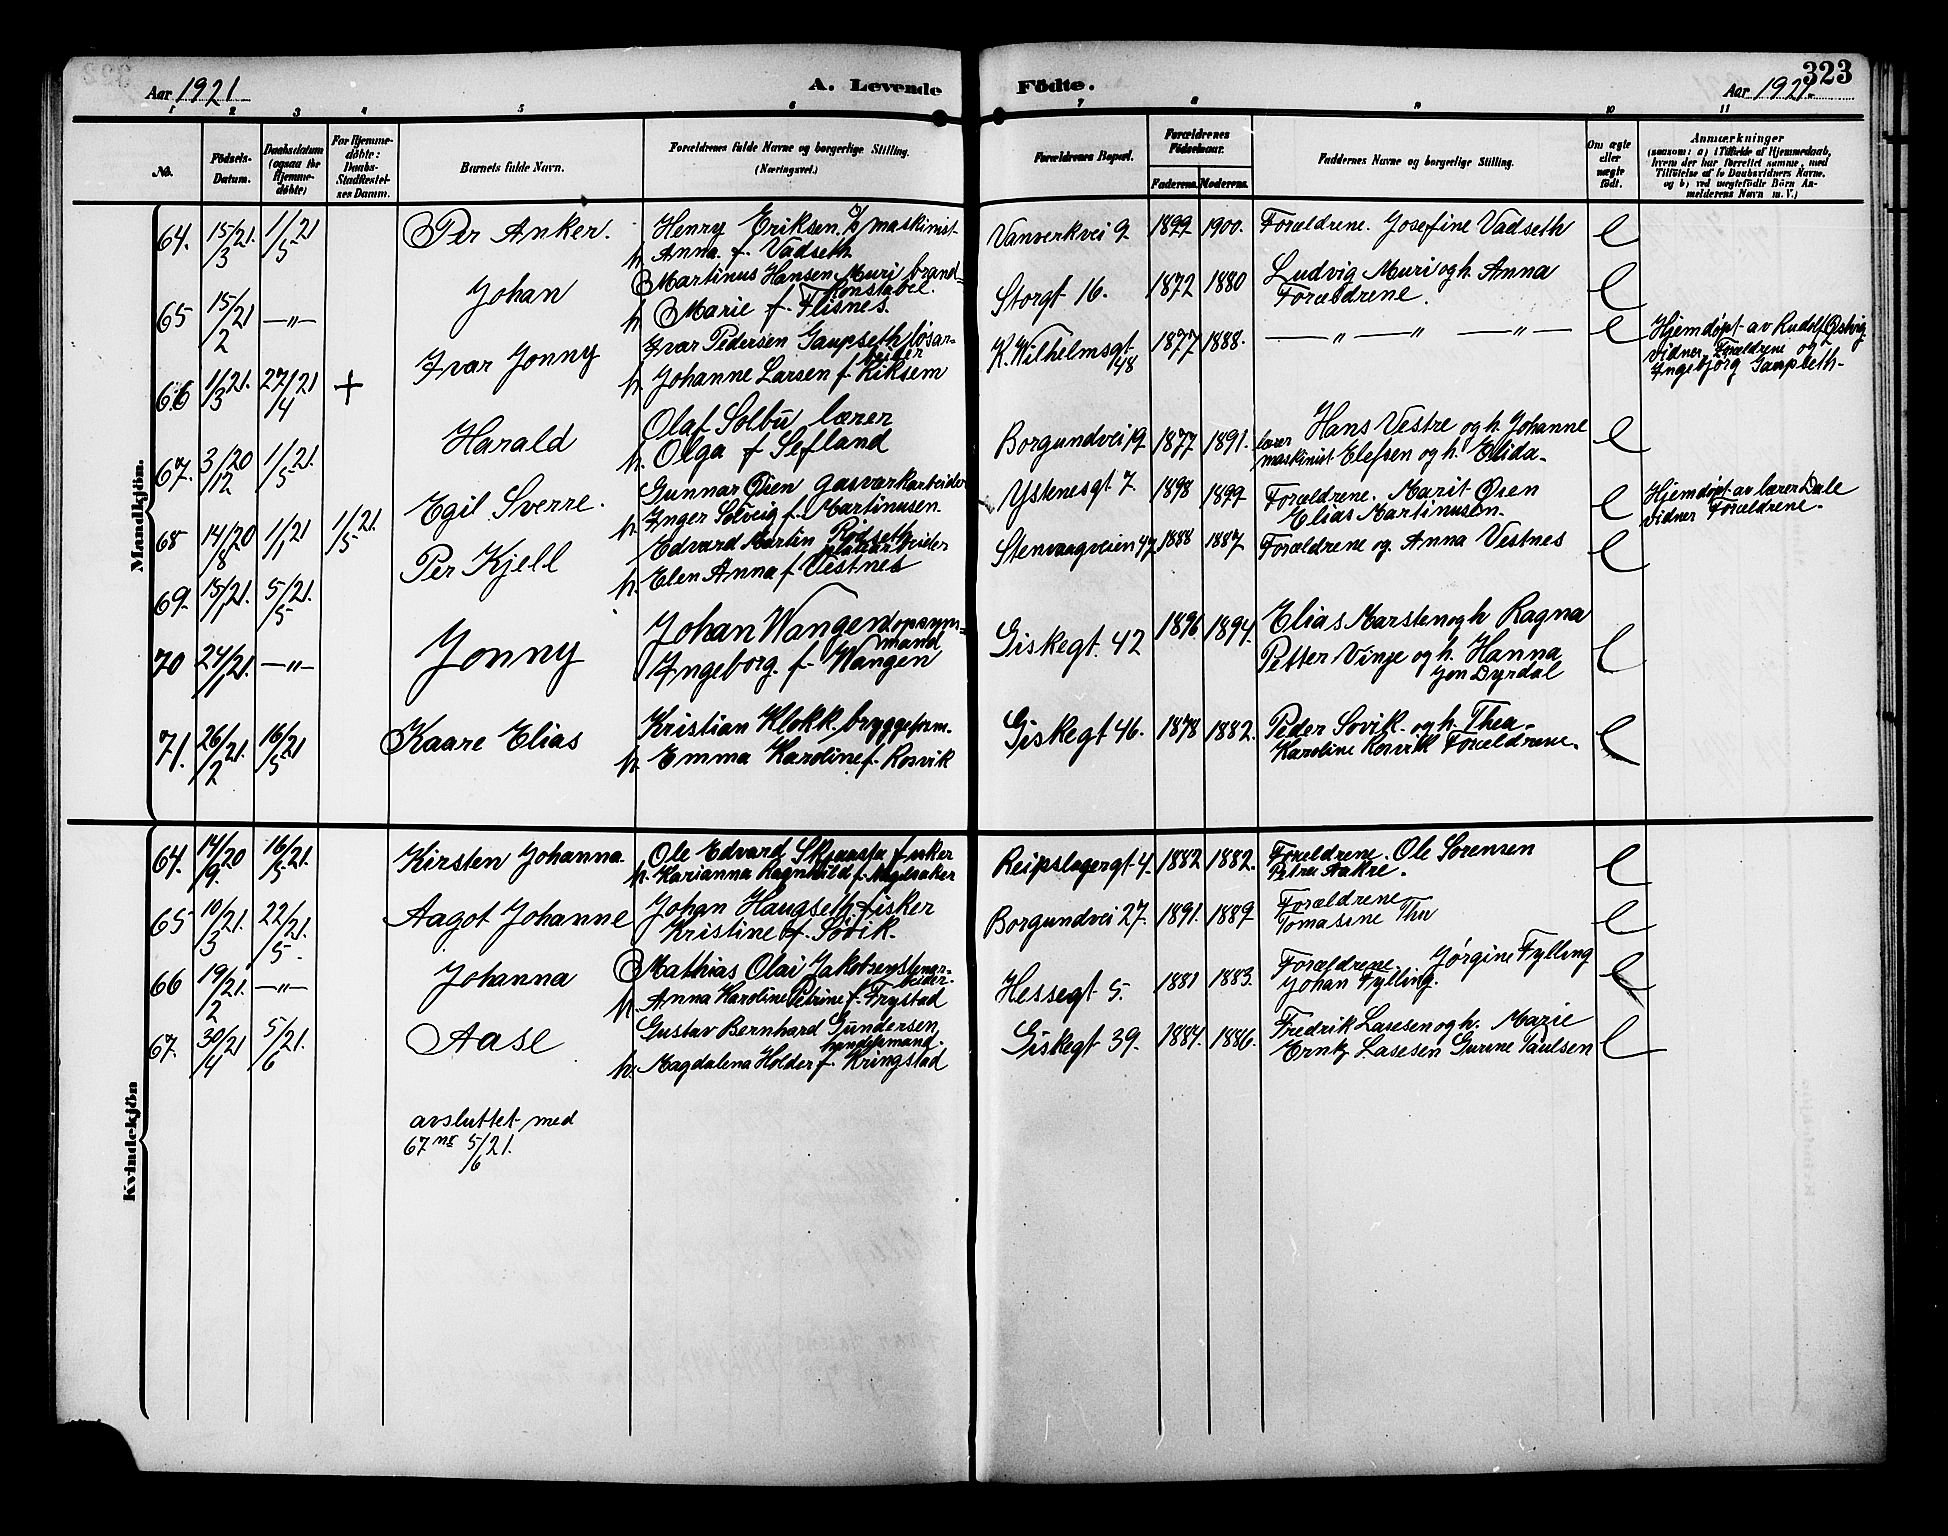 Aar 1921
A. Levende Födte.
Aar 1921.
323
1 2 3 4 5 6 7 8 9 10 11
No.
Födsels-Datum.
Daabsdatum (ogsaa for Hjemme-döbte)
For Hjemme-döbte: Daabs-Stadfæstel-ses Datum.
Barnets fulde Navn.
Forældrenes fulde Navne og borgerlige Stilling. (Næringsvei.)
Forældrenes Bopæl.
Forældrenes Födselsaar.
Faderens. Moderens.
Faddernes Navne og borgerlig Stilling.
Om ægte eller uægte födt.
Anmærkninger
(saasom: a) i Tilfælde af Hjemmedaab, hvem der har forrettet samme, med Tilföielse af to Daabsvidners Navne, og b) ved uægtefödte Börn An-melderens Navn m. V.)
Mandkjön.
64. 15/3 21. 1/5 21 Per Anker. Henry Eriksen maskinist
h. Anna f. Vadseth
Vanverkvei 9. 1899 1900. Forældrene. Josefine Vadseth e
65 15/2 21 —„— Johan Martinus Hansen Muri brand-
konstabel.
h. Marie f. Flisnes.
Storgt 16. 1872 1880 Ludvig Muri og h. Anna
Forældrene. e
66 1/3 21. 27/4 21 + Ivar Jonny Ivar Pedersen Gaupseth løsar-
beider
h. Johanne Larsen f. Kiksem
K. Wilhelmsgt 48 1877 1888. —„— —„— —„— e
Hjemdøpt av Rudolf Østvig
vidner Forældrene og
Ingebjørg Gaupseth-
67. 3/12 20 1/5 21. Harald Olaf Solbu lærer
h. Olga f Sefland
Borgundvei 19. 1877 1891. lærer Hans Vestre og h. Johanne
maskinist Elefsen og h. Elida- e
68 14/8 20 1/1 21 1/5 21. Egil Sverre. Gunnar Øien gasværkarbeider
h. Inger Solveig f. Martinusen.
Ystenesgt 7 1898 1899 Forældrene. Marit Øien
Elias Martinusen. e
Hjemdøpt av lærer Dale
vidner Forældrene.
69. 15/1 21. 5/5 21. Per Kjell Edvard Martin
h. Elen Anna f Vestnes
Stenvaagveien 47 1888 1887 Forældrene og Anna Vestnes e
70 24/1 21. —„— Jonny Johan Wangen opsyns-
mand
Ingeborg f. Wangen
Giskegt. 42 1896 1894. Elias Marsten og h Ragna
Petter Vinje og h. Hanna
Jon Dyrdal e
71. 26/2 21. 16/5 21 Kaare Elias Kristian Klokk. bryggeform.
h. Emma Karoline f. Rosvik
Giskegt 46. 1878 1882. Peder Sovik. og h. Thea.
Karoline Rosvik Forældrene. e
Kvindekjön
64. 14/9 20 16/5 21. Kirsten Johanna. Ole Edvard fisker
h. Karianna Ragnhild f.
Reipslagergt 4. 1882 1882. Forældrene. Ole Sorensen
Petra Aakre. e
65 10/3 21. 22/5 21. Aagot Johanne Johan Haugseth. fisker
Kristine f. Sovik.
Borgundvei 27. 1891. 1889 Forældrene
Tomasine e
66 19/2 21. —„— Johanna Mathias Olai Jakobsen
h. Anna Karoline Petrine f. Frystad
Hessegt 5. 1881 1883. Forældrene. Jørgine Fylling
Johan Fylling. e
67. 30/4 21 5/6 21. Aase Gustav Bernhard Gundersen
handelsmand.
h. Magdalena Holder f. Kringstad
Giskegt 39. 1884. 1886. Fredrik Lasesen og h. Marie
Lasesen Gurine Paulsen e
avsluttet med
67 nr 5/6 21.